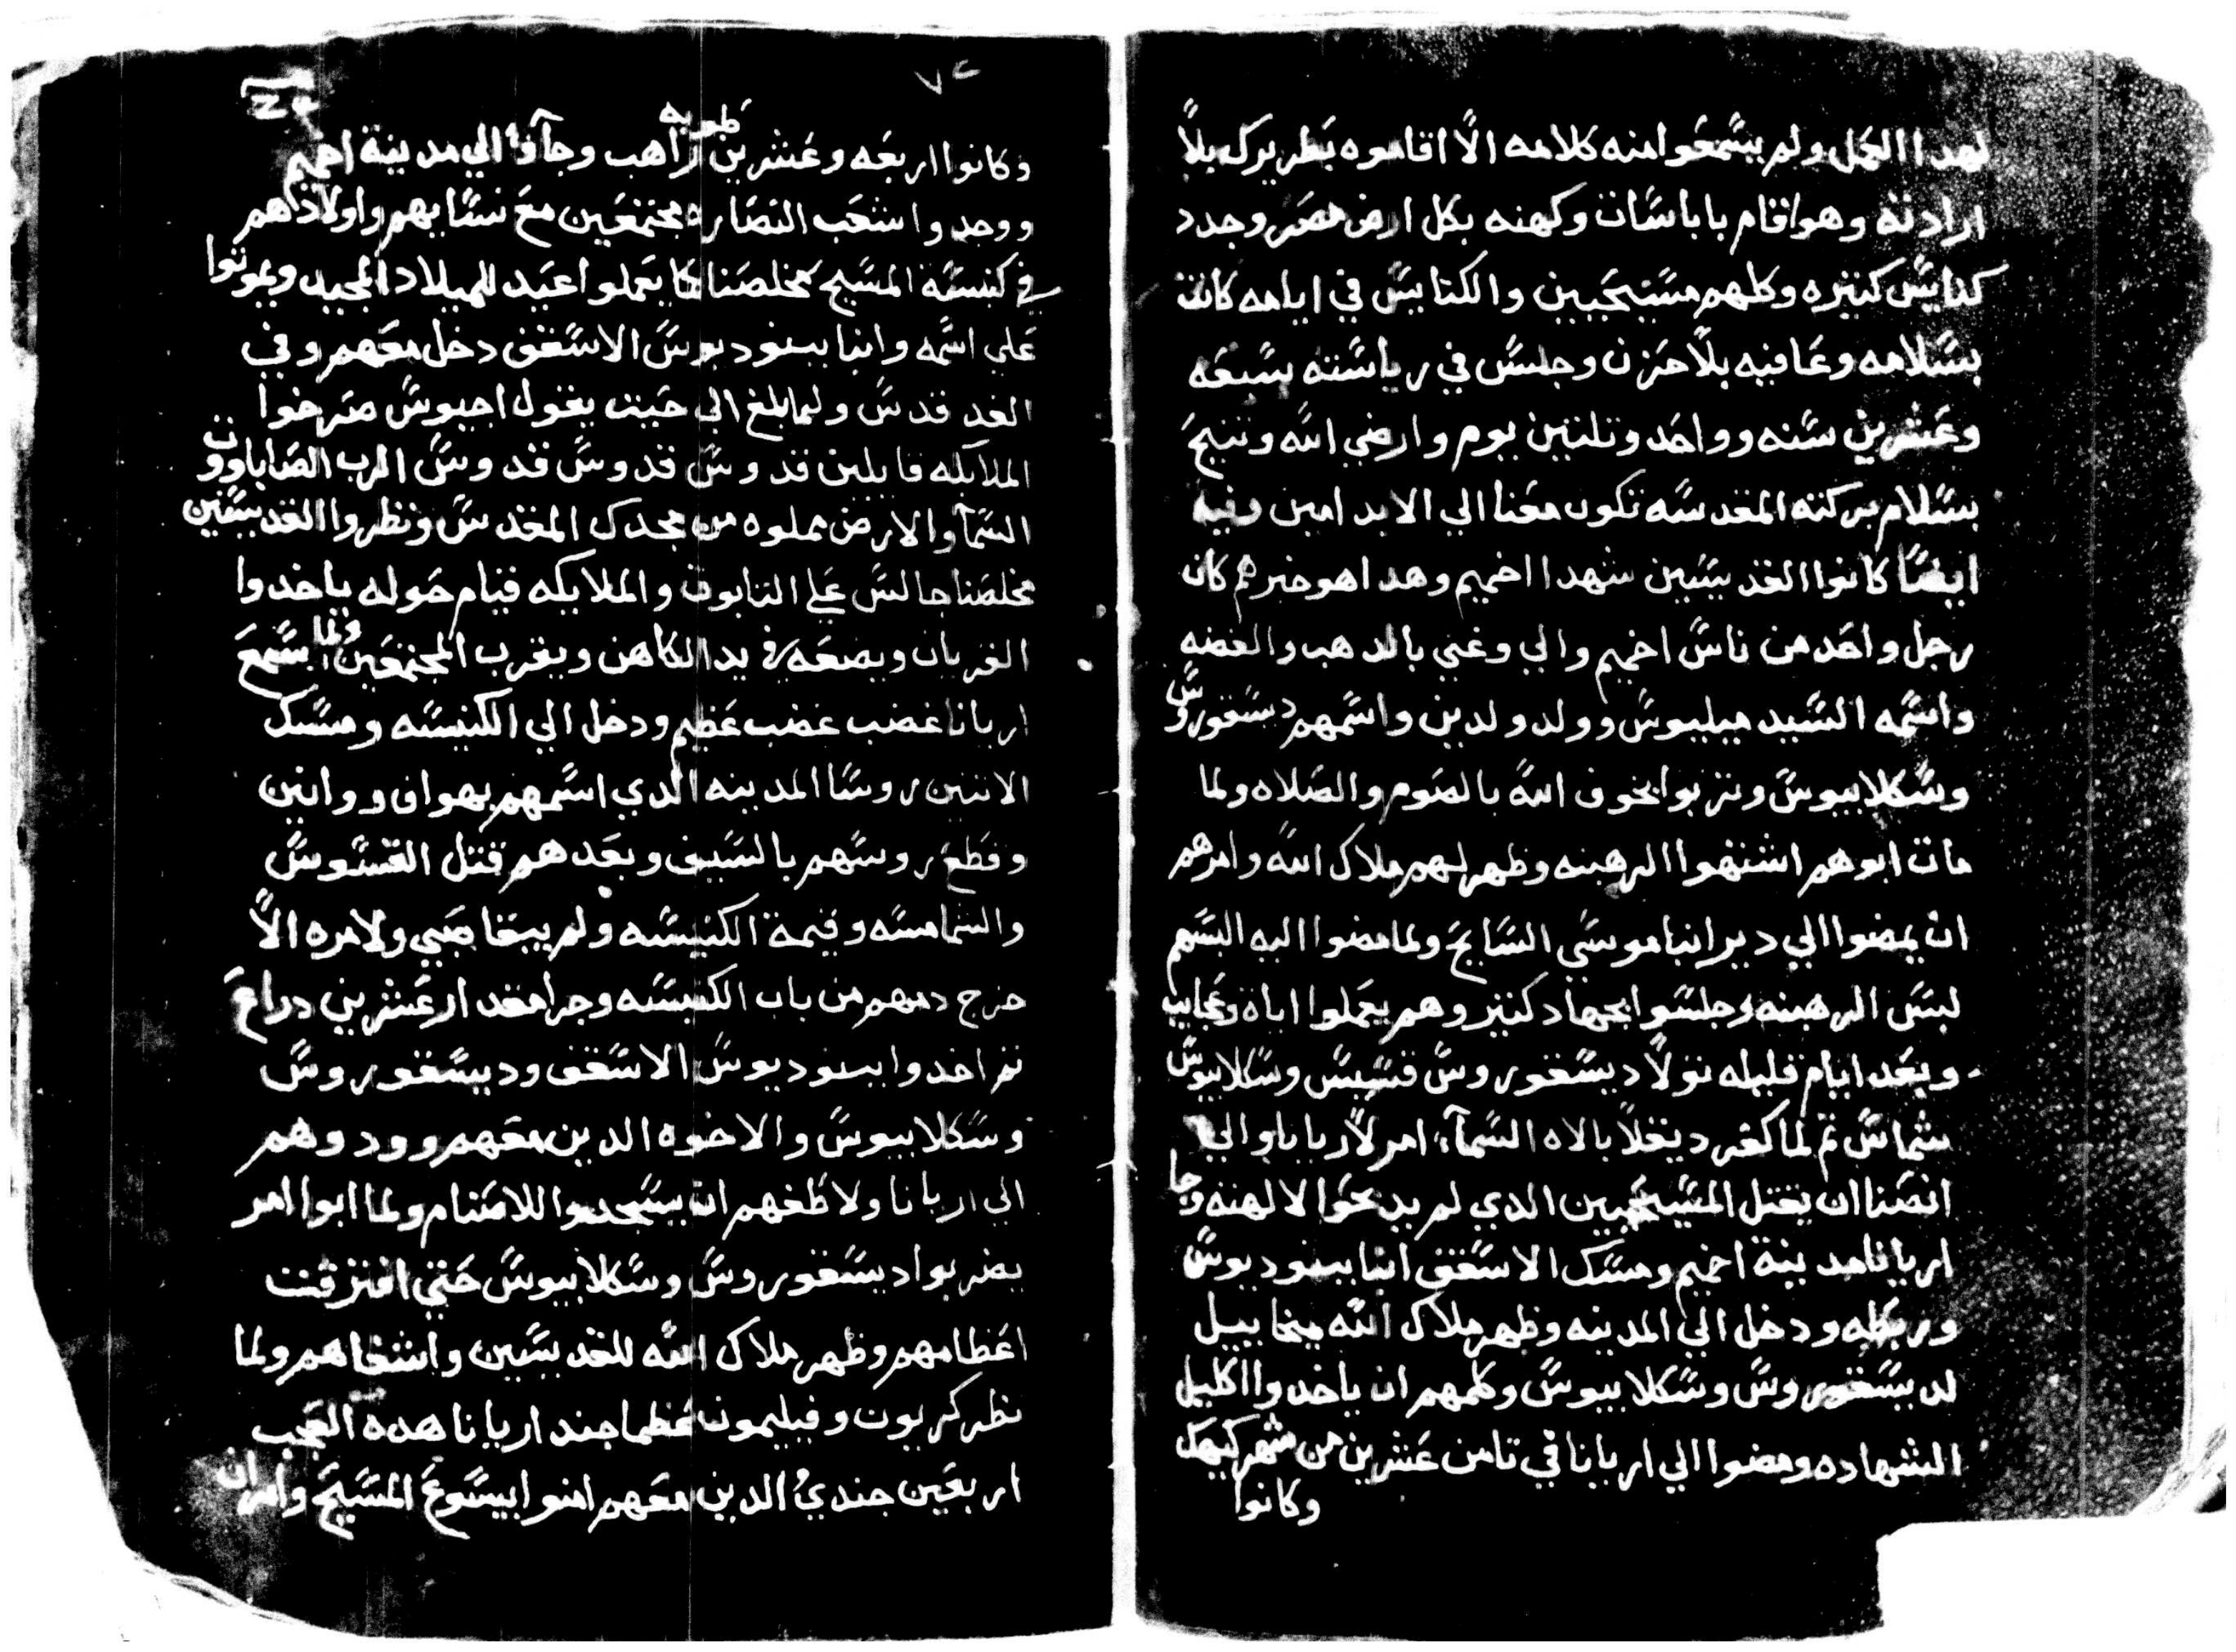 لهدا العمل ولم يسمعوا منه كلامه الا اقاموه بطريرك بلا
ارادته وهو اقام باباسات وكهنه بكل ارض مصر وجدد
كنايس كتيره وكلهم مسيحيين والكنايس في ايامه كانت
بسلامه وعافيه بلا حزن وجلس في رياسته سبعه
وعشرين سنه وواحد وتلتين يوم وارضي الله وتنيح
بسلام بركته المقدسه تكون معنا الي الابد امين وفيه
ايضا كانوا القديسين شهدا اخميم وهدا هو خبرهم كان
رجل واحد من ناس اخميم والي وغني بالدهب والفضه
واسمه السيد ميليوس وولد ولدين واسمهم دسقوروس
وسكلابيوس وتربوا بخوف الله بالصوم والصلاه ولما
مات ابوهم اشتهوا الرهبنه وظهر لهم ملاك الله وامرهم
ان يمضوا الي دير انبا موسي السايح ولما مضوا اليه البسهم
لبس الرهبنه وجلسوا بجهاد كتير وهم يعملوا اياه وعجايب
وبعد ايام قليله تولا ديسقوروس قسيس وسكلابيوس
شماس تم لما كفر ديقلا بالاه السماء امر لاريانا والي
انصنا ان يقتل المسيحيين الدي لم يدبحوا لالهته وجا
اريانا مدينة اخميم ومسك الاسقف انبا بسوديوس
وربطه ودخل الي المدينه وظهر ملاك الله ميخاييل
لديسقوروس وسكلابيوس وكلمهم ان ياخدوا اكليل
الشهاده ومضوا الي اريانا في تامن عشرين من شهر كيهك
وكانوا
٧٢
وكانوا اربعه وعشرين راهب وجآوا الي مدينة اخميم
طوبه
ووجدوا شعب النصاره مجتمعين مع نسايهم واولادهم
في كنيسة المسيح مخلصنا كا يعملوا عيد الميلاد المجيد ويموتوا
علي اسمه وانبا بسوديوس الاسقف دخل معهم وفي
الغد قدس ولما بلغ الي حيت يقول اجيوس صرخوا
الملايكه قايلين قدوس قدوس قدوس الرب الصاباووت
السمآ والارض مملوه من مجدك المقدس ونظروا القديسين
مخلصنا جالس علي التابوت والملايكه قيام حوله ياخدوا
القربان ويضعه في يد الكاهن ويقرب المجتمعين ولما سمع
اريانا غضب غضب عظيم ودخل الي الكنيسه ومسك
الاتنين روسا المدينه الدي اسمهم بهواف ووانين
وقطع روسهم بالسيف وبعدهم قتل القسوس
والشمامسه وقيمة الكنيسه ولم يبقا صبي ولا مره الا
خرج دمهم من باب الكنيسه وجرا مقدار عشرين دراع
تم اخدوا بسوديوس الاسقف وديسقوروس
وسكلابيوس والاخوه الدين معهم وودوهم
الي اريانا ولاطفهم ان يسجدوا للاصنام ولما ابوا امر
يضربوا ديسقوروس وسكلابيوس حتي افترقت
اعظامهم وظهر ملاك الله للقديسين واشفاهم ولما
نظر كريون وفيليمون عظما جند اريانا هده العجب
اربعين جندي الدين معهم امنوا بيسوع المسيح وامر ان